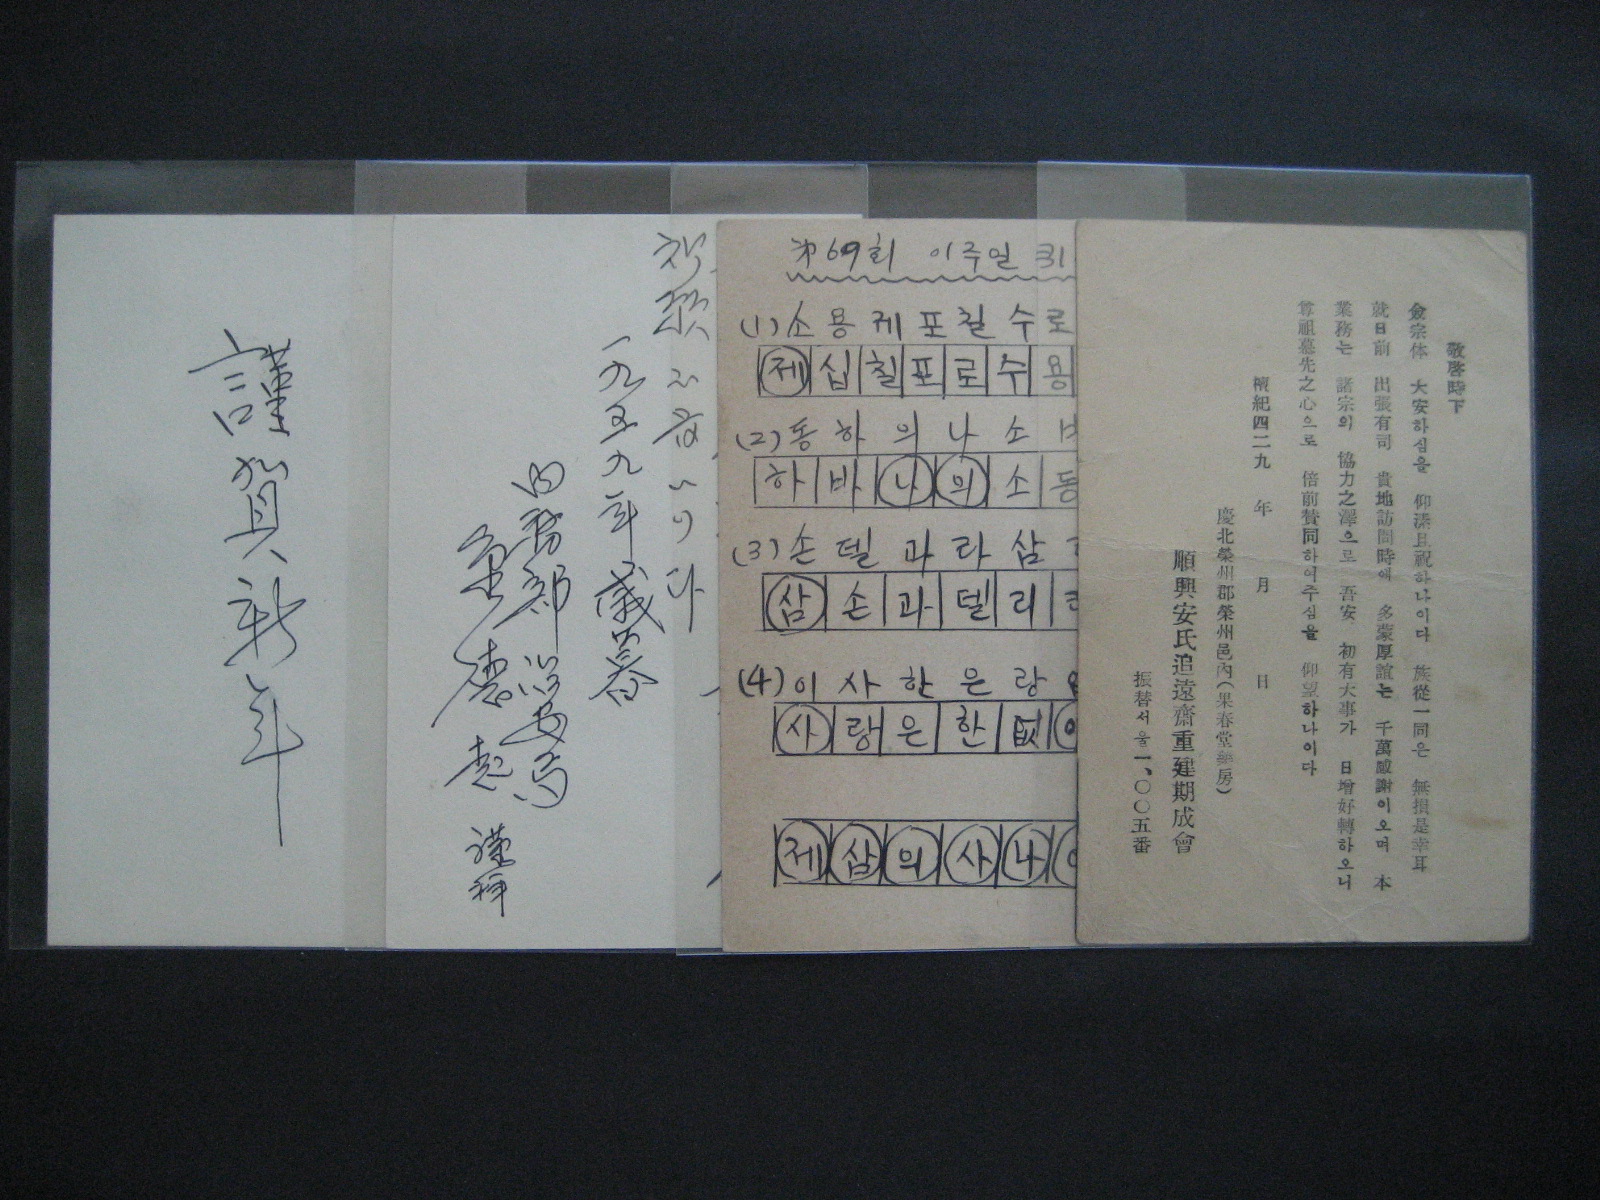 謹賀新年
祝
一九五九年 歲暮
内務部
謹拜
第69회 이주일 퀴
(1) 소 용 제 포 칠 수 로
제 십 칠 포 로 수 용
(2) 동 하 의 나 소 바
하 바 나 의 소 동
(3) 손 델 과 라 삼
삼 손 과 델 리 라
(4) 이 사 한 은 랑
사 랑 은 한 없 이
제 삼 의 사 나 이
敬啓時下
僉宗体 大安하심을 仰溱且祝하나이다 族從一同은 無損是幸耳
就日前 出張有司 貴地訪問時에 多蒙厚誼는 千萬感謝이오며 本
業務는 諸宗의 協力之澤으로 吾安 初有大事가 日增好轉하오니
尊祖慕先之心으로 倍前賛同하여주심을 仰望하나이다
檀紀四二九 年 月 日
慶北榮州郡榮州邑內(果春堂藥房)
順興安氏追遠齋重建期成會
振替서울一、〇〇五番